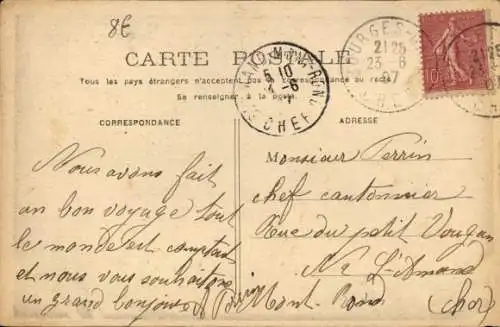 8E
CARTE POSTALE
BOURGES
21 25
23 - 6
07
CHER
10
MONT-ROND
5 10
24 - 6
CHER
Tous les pays étrangers n'acceptent pas la correspondance au recto
Se renseigner à la poste
CORRESPONDANCE
ADRESSE
Nous avons fait
un bon voyage tout
le monde est comptent
et nous vous souhaitons
un grand bonjour
Monsieur Perrin
chef cantonnier
Rue du petit Vougan
No 2 St-Amand
Mont-Rond (Cher)